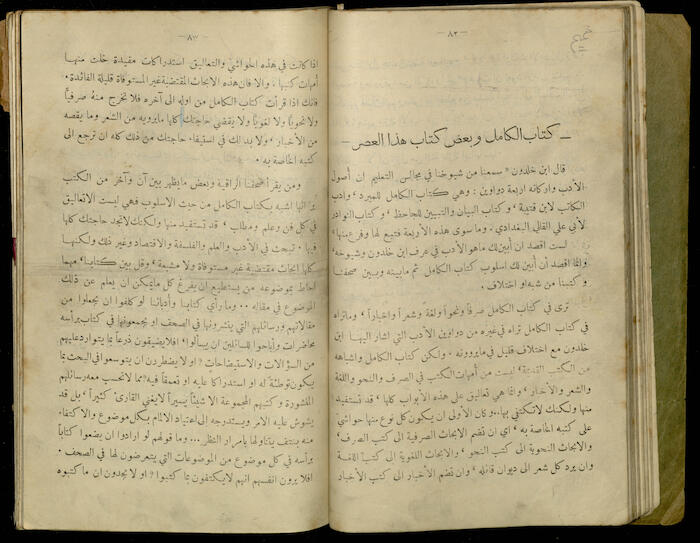 — ٨٢ —
— كتاب الكامل وبعض كتاب هذا العصر —
قال ابن خلدون « سمعنا من شيوخنا في مجالس التعليم ان أصول
الأدب واركانه اربعة دواوين : وهي كتاب الكامل للمبرد ، وادب
الكاتب لابن قتيبة ، وكتاب البيان والتبيين للجاحظ ، وكتاب النوادر
لأبي علي القالي البغدادي . وما سوى هذه الأربعة فتبع لها وفرع منها »
لست اقصد أن أبين لك ماهو الأدب في عرف ابن خلدون وشيوخه
وانما اقصد أن أبين لك اسلوب كتاب الكامل ثم مابينه وبين صحفنا
وكتبنا من شبه او اختلاف .
ترى في كتاب الكامل صرفاً ونحواً ولغة وشعراً واخباراً ، وماتراه
في كتاب الكامل تراه في غيره من دواوين الأدب التي اشار اليها ابن
خلدون مع اختلاف قليل في مايروونه . ولكن كتاب الكامل واشباهه
من الكتب القديمة ليست من أمهات الكتب في الصرف والنحو واللغة
والشعر والأخبار ، وانما هي تعاليق على هذه الأبواب كلها ، قد تستفيد
منها ولكنك لاتكتفي بها.. وكان الأولى ان يكون كل نوع منها حواشي
على كتبه الخاصة به ، اي ان تضم الابحاث الصرفية الى كتب الصرف ،
والابحاث النحوية الى كتب النحو ، والابحاث اللغوية الى كتب اللغة
وان يرد كل شعر الى ديوان قائله ، وان تضم الأخبار الى كتب الأخبار
— ٨٣ —
اذا كانت في هذه الحواشي والتعاليق استدراكات مفيدة خلت منها
أمهات كتبها ، والا فان هذه الابحاث المقتضبة غير المستوفاة قليلة الفائدة .
فانك اذا قرأت كتاب الكامل من اوله الى آخره فلا تخرج منه صرفياً
ولا نحوياً ولا لغوياً ولا يقضي حاجتك كلها مايرويه من الشعر وما يقصه
من الأخبار ، ولا بد لك في استيفاء حاجتك من ذلك كله ان ترجع الى
كتبه الخاصة به .
ومن يقرأ صحفنا الراقية وبعض مايظهر بين آن وآخر من الكتب
يراها اشبه بكتاب الكامل من حيث الاسلوب فهي ليست الا تعاليق
في كل فن وعلم ومطلب ، قد تستفيد منها ولكنك لاتجد حاجتك كلها
فيها . تبحث في الأدب والعلم والفلسفة والاقتصاد وغير ذلك ولكنها
كلها ابحاث مقتضبة غير مستوفاة ولا مشبعة ، وقل بين كتابنا ، مهما
احاط بموضوعه من يستطيع ان يفرغ كل مايمكن ان يعلم عن ذلك
الموضوع في مقاله .. وما رأي كتابنا وأدبائنا لو كلفوا ان يجعلوا من
مقالاتهم ورسائلهم التي ينشرونها في الصحف او يجمعونها في كتاب برأسه
محاضرات وأباحوا للسائلين ان يسألوا ، افلا يضيقون ذرعاً بما يتوارد عليهم
من السؤالات والاستيضاحات ? او لا يضطرون ان يتوسعوا في البحث بما
يكون توطئة له او استدراكا عليه او تعمقاً فيه? مما لانحسب معه رسائلهم
المنشورة وكتبهم المجموعة الا شيئاً يسيراً لايغني القارئ كثيراً ، بل قد
يشوش عليه الامر ويستدرجه الى اعتياد الالمام بكل موضوع والاكتفاء
منه بنتف يتناولها بامرار النظر ... وما قولهم لو ارادوا ان يضعوا كتاباً
برأسه في كل موضوع من الموضوعات التي يتعرضون لها في الصحف .
افلا يرون انفسهم انهم لايكتفون بما كتبوا ? او لا يجدون ان ماكتبوه